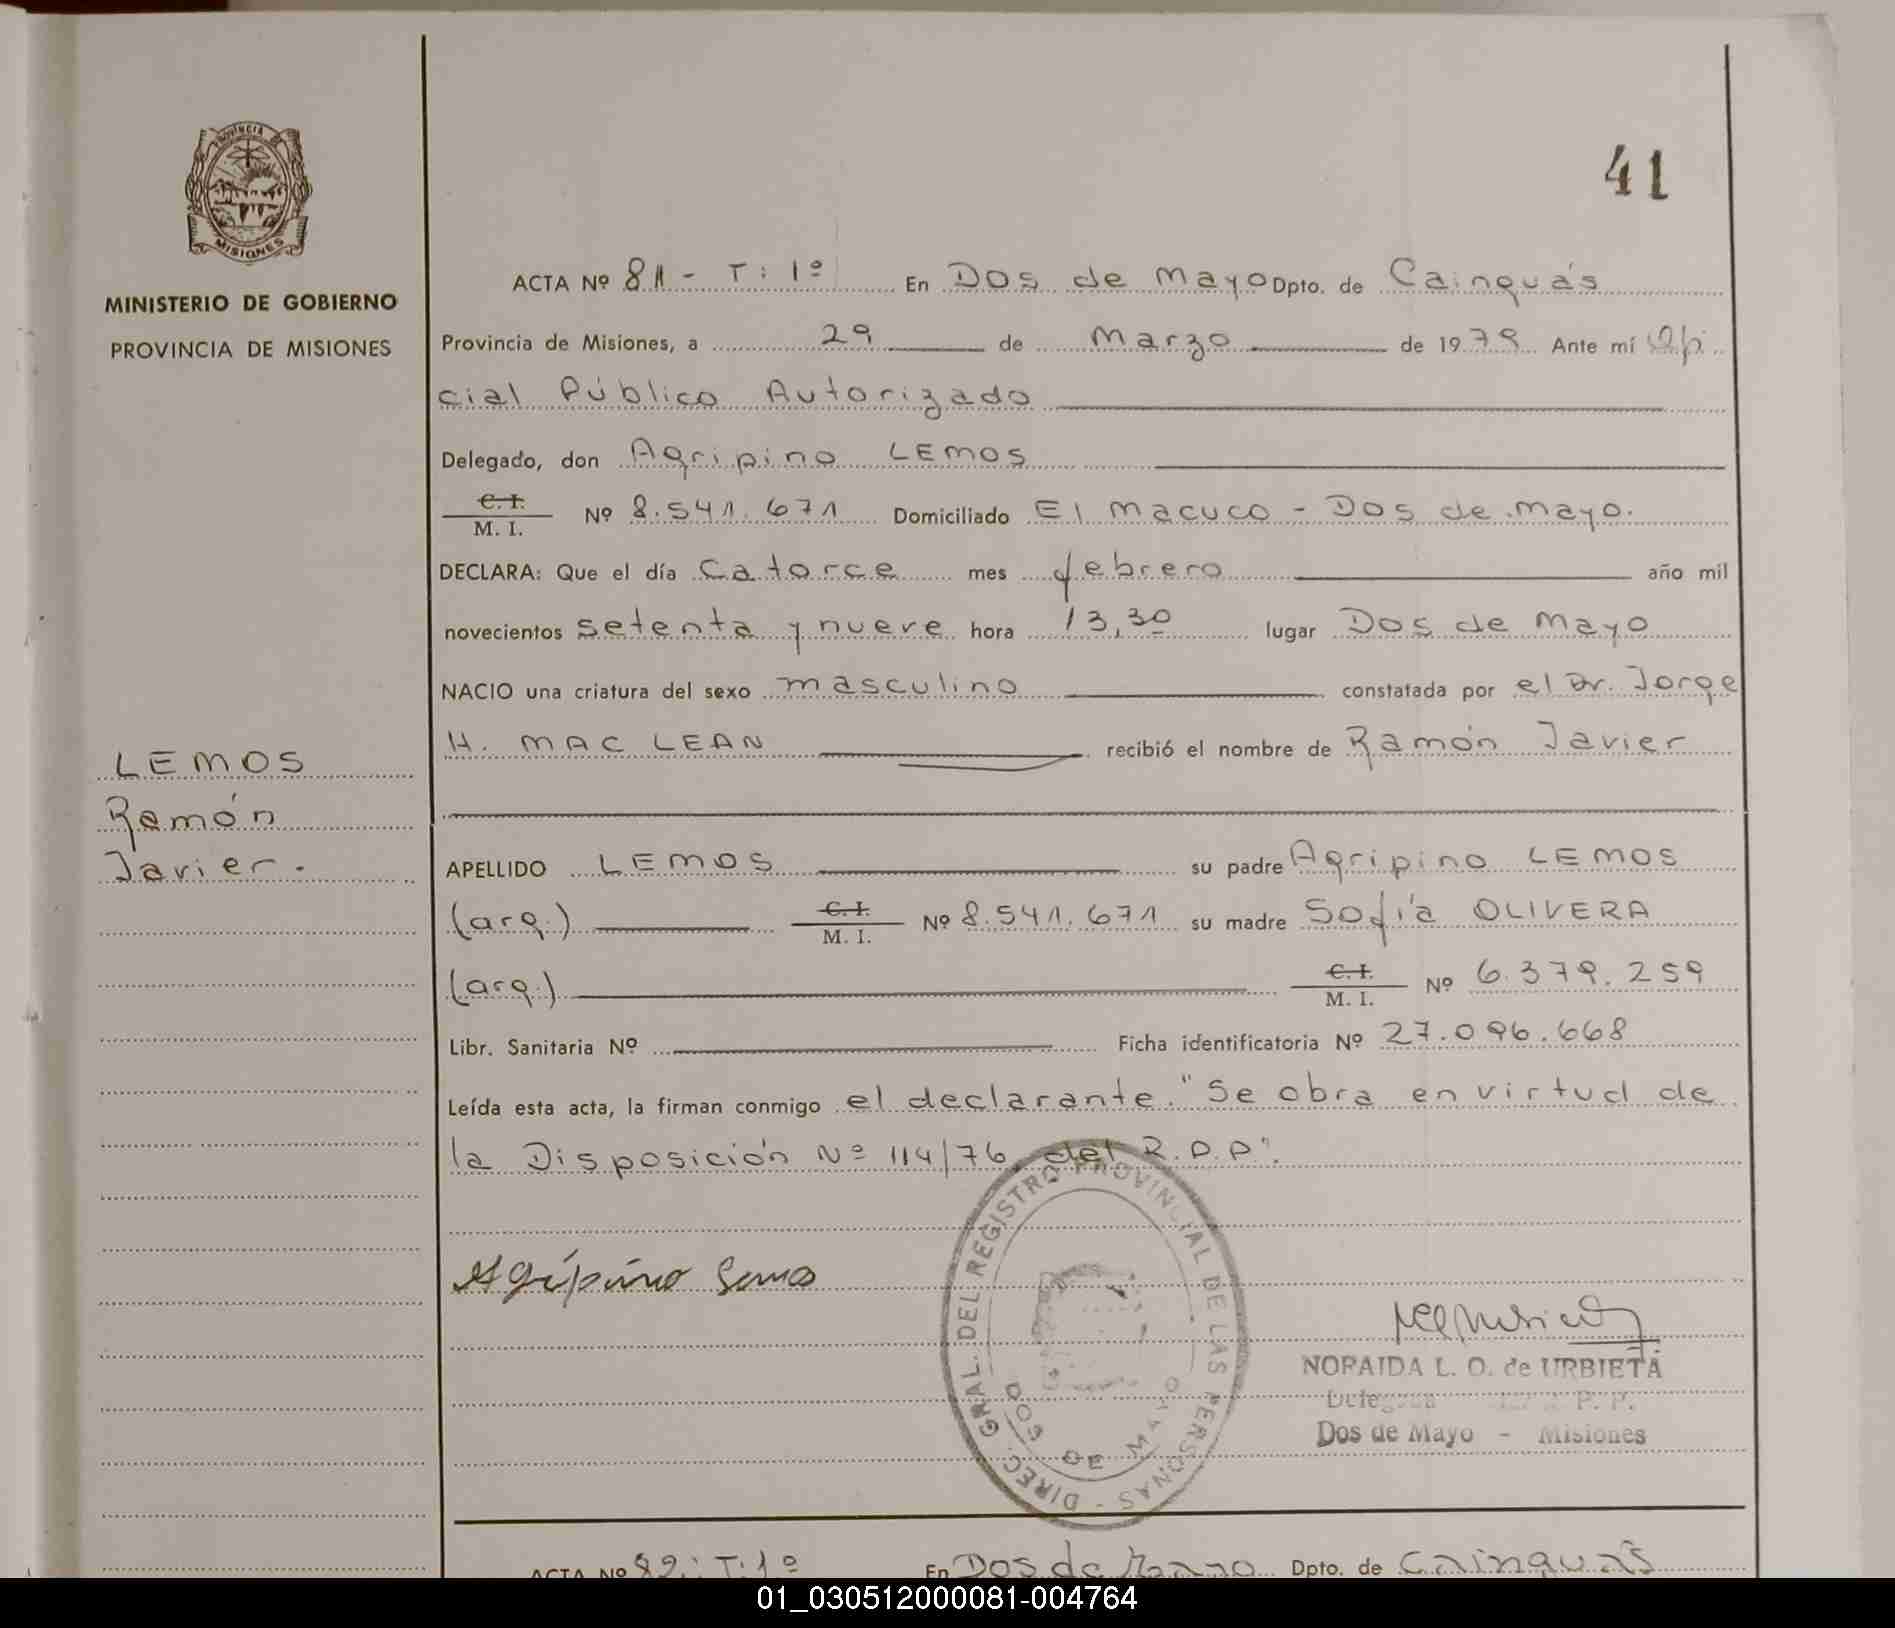 PROVINCIA
MISIONES
MINISTERIO DE GOBIERNO
PROVINCIA DE MISIONES
LEMOS
Ramón
Javier.
41
ACTA Nº 81 - T: 1º En Dos de Mayo Dpto. de Cainguás
Provincia de Misiones, a 29 de Marzo de 1979 Ante mí Ofi
cial Público Autorizado
Delegado, don Agripino LEMOS
C. I. M. I. Nº 8.541.671 Domiciliado El Macuco - Dos de Mayo.
DECLARA: Que el día catorce mes febrero año mil
novecientos setenta y nueve hora 13,30 lugar Dos de Mayo
NACIO una criatura del sexo masculino constatada por el Dr. Jorge
H. MAC LEAN recibió el nombre de Ramón Javier
APELLIDO LEMOS su padre Agripino LEMOS
(arg.) C. I. M. I. Nº 8.541.671 su madre Sofía OLIVERA
(arg.) C. I. M. I. Nº 6.379.259
Libr. Sanitaria Nº Ficha identificatoria Nº 27.096.668
Leída esta acta, la firman conmigo el declarante. "Se obra en virtud de
la Disposición Nº 114/76 del R.P.P".
DIREC. GRAL. DEL REGISTRO PROVINCIAL DE LAS PERSONAS -
DOS DE MAYO
Agripino Lemos
NORAIDA L. O. de URBIETA
P. P.
Dos de Mayo - Misiones
ACTA Nº 82: T: 1º En Dos de Mayo Dpto. de Cainguás
01_030512000081-004764